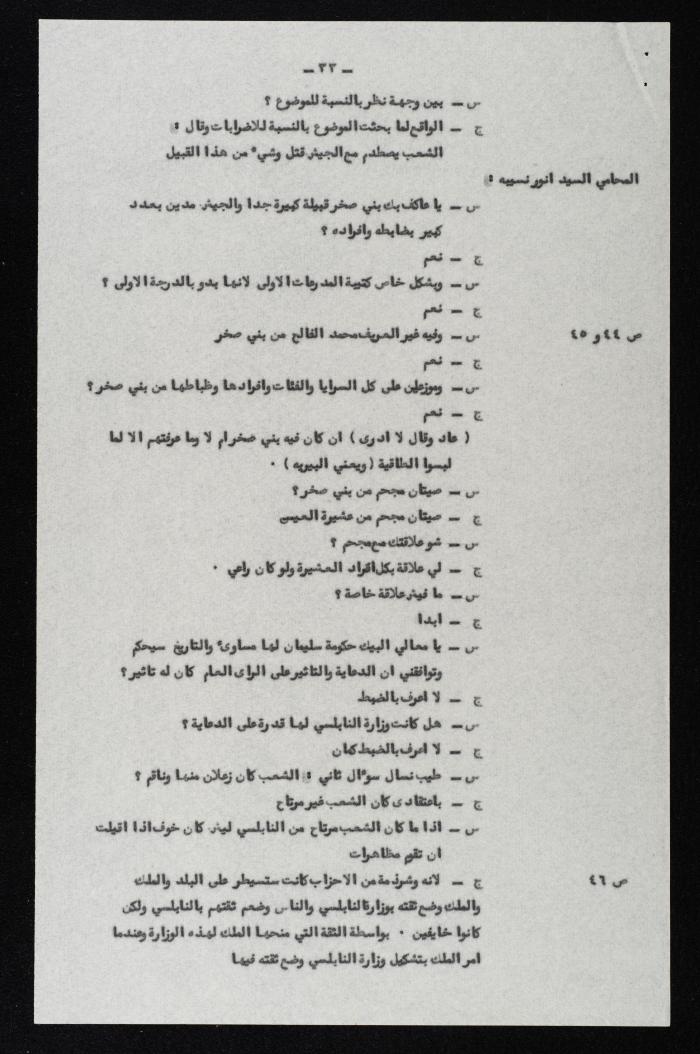 ـ ٣٣ ـ
س ـ بين وجهة نظر بالنسبة للموضوع ؟
ج ـ الواقع لما بحثت الموضوع بالنسبة للاضرابات وقال :
الشعب يصطدم مع الجيش قتل وشيء من هذا القبيل
المحامي السيد انور نسيبه :
س ـ يا عاكف بك بني صخر قبيلة كبيرة جدا والجيش مدين بعدد
كبير بضابطه وافراده ؟
ج ـ نعم
س ـ وبشكل خاص كتيبة المدرعات الاولى لانها بدو بالدرجة الاولى ؟
ج ـ نعم
ص ٤٤ و ٤٥
س ـ وفيه غير العريف محمد الفالح من بني صخر
ج ـ نعم
س ـ وموزعين على كل السرايا والفئات وافرادها وظباطها من بني صخر ؟
ج ـ نعم
( عاد وقال لا ادرى ) ان كان فيه بني صخر ام لا وما عرفتهم الا لما
لبسوا الطاقية ( ويعني البيريه ) ٠
س ـ صيتان مجحم من بني صخر ؟
ج ـ صيتان مجحم من عشيرة العيسى
س ـ شو علاقتك مع مجحم ؟
ج ـ لي علاقة بكل افراد العشيرة ولو كان راعي ٠
س ـ ما فيش علاقة خاصة ؟
ج ـ ابدا
س ـ يا معالي البيك حكومة سليمان لها مساوئ والتاريخ سيحكم
وتوافقني ان الدعاية والتاثير على الراى العام كان له تاثير ؟
ج ـ لا اعرف بالضبط
س ـ هل كانت وزارة النابلسي لها قدرة على الدعاية ؟
ج ـ لا اعرف بالضبط كمان
س ـ طيب نسال سوءال ثاني : الشعب كان زعلان منها وناقم ؟
ج ـ باعتقادى كان الشعب غير مرتاح
س ـ اذا ما كان الشعب مرتاح من النابلسي ليش كان خوف اذا اقيلت
ان تقوم مظاهرات
ص ٤٦
ج ـ لانه وشرذمة من الاحزاب كانت ستسيطر على البلد والملك
والملك وضع ثقته بوزارة النابلسي والناس وضعم ثقتهم بالنابلسي ولكن
كانوا خايفين ٠ بواسطة الثقة التي منحها الملك لهذه الوزارة وعندما
امر الملك بتشكيل وزارة النابلسي وضع ثقته فيها